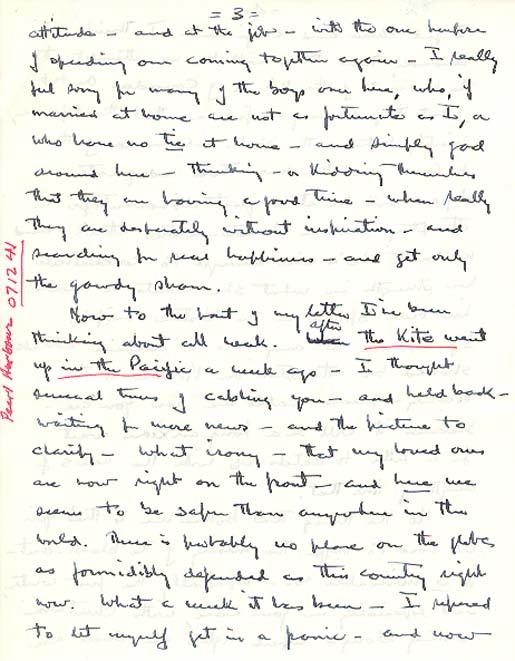 = 3 =
attitude - and at the job - with the one purpose
of speeding our coming together again - I really
feel sorry for many of the boys over here, who, if
married at home are not as fortunate as I, or
who have no tie at home - and simply gad
around here - thinking - or kidding themselves
that they are having a good time - when really
they are desperately without inspiration - and
searching for real happiness - and get only
the gawdy sham.
Now to the part of my letter I've been
thinking about all week. after the Kite went
up in the Pacific a week ago - I thought
several times of cabling you - and held back -
waiting for more news - and the picture to
clarify - what irony - that my loved ones
are now right on the front - and here we
seem to be safer than anywhere in the
world. There is probably no place on the globe
as formidibly defended as this country right
now. What a week it has been - I refused
to let myself get in a panic - and now
Pearl Harbour 071241